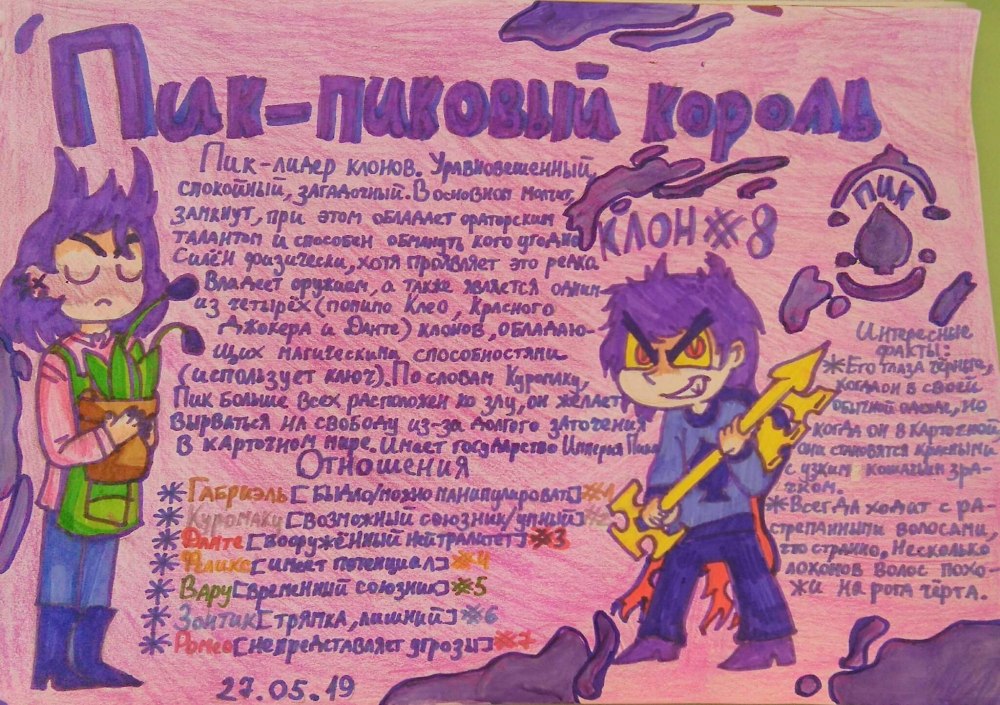 Пик-пиковый король
Пик-лидер клонов. Уравновешенный,
спокойный, загадочный. В основном молчит,
замкнут, при этом обладает ораторским
талантом и способен обмануть кого угодно.
Силён физически, хотя проявляет это редко
Владеет оружием, а также является одним
из четырёх (помимо Клео, Красного
Джокера и Данте) клонов, обладаю-
щих магическими способностями
(использует ключ). По словам Куромаку,
Пик больше всех расположен ко злу, он желает
вырваться на свободу из-за долгого заточения
в карточном мире. Имеет государство Империя Пика
Отношения
*Габриэль [быдло/можно манипулировать] #1
*Куромаку [возможный союзник/умный] #2
*Данте [вооружённый нейтралитет] #3
*Феликс [имеет потенциал] #4
*Вару [временный союзник] #5
*Зонтик [тряпка, лишний] #6
*Ромео [не представляет угрозы] #7
27.05.19
клон #8
Пик
Интересные
факты:
*Его глаза чёрные,
когда он в своей
обычной одежде, но
когда он в карточной
они становятся красными
с узким кошачьим зра-
чком.
*Всегда ходит с ра-
стрепанными волосами,
что странно, несколько
локонов волос похо-
жи на рога чёрта.